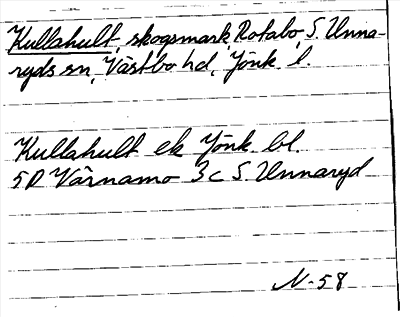 Kullahult, skogsmark, Rotabo, S. Unna-
ryds sn, Västbo hd, Jönk. l.
Kullahult ek Jönk. bl.
5D Värnamo 3c S. Unnaryd
N-58